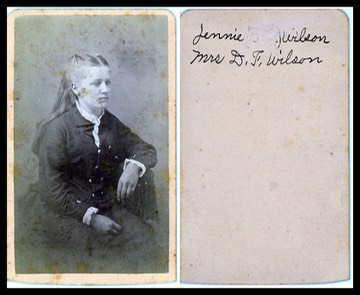 Jennie Wilson
Mrs D. F. Wilson